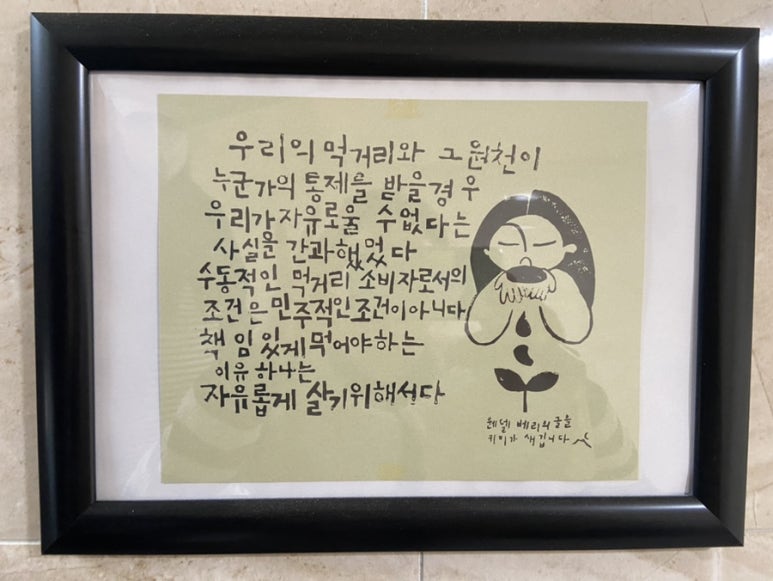 우리의 먹거리와 그 원천이
누군가의 통제를 받을 경우
우리가 자유로울 수 없다는
사실을 간과했었다
수동적인 먹거리 소비자로서의
조건은 민주적인 조건이 아니다
책임있게 먹어야하는
이유 하나는
자유롭게 살기위해서다
웬델 베리의 글을
키미가 새깁니다